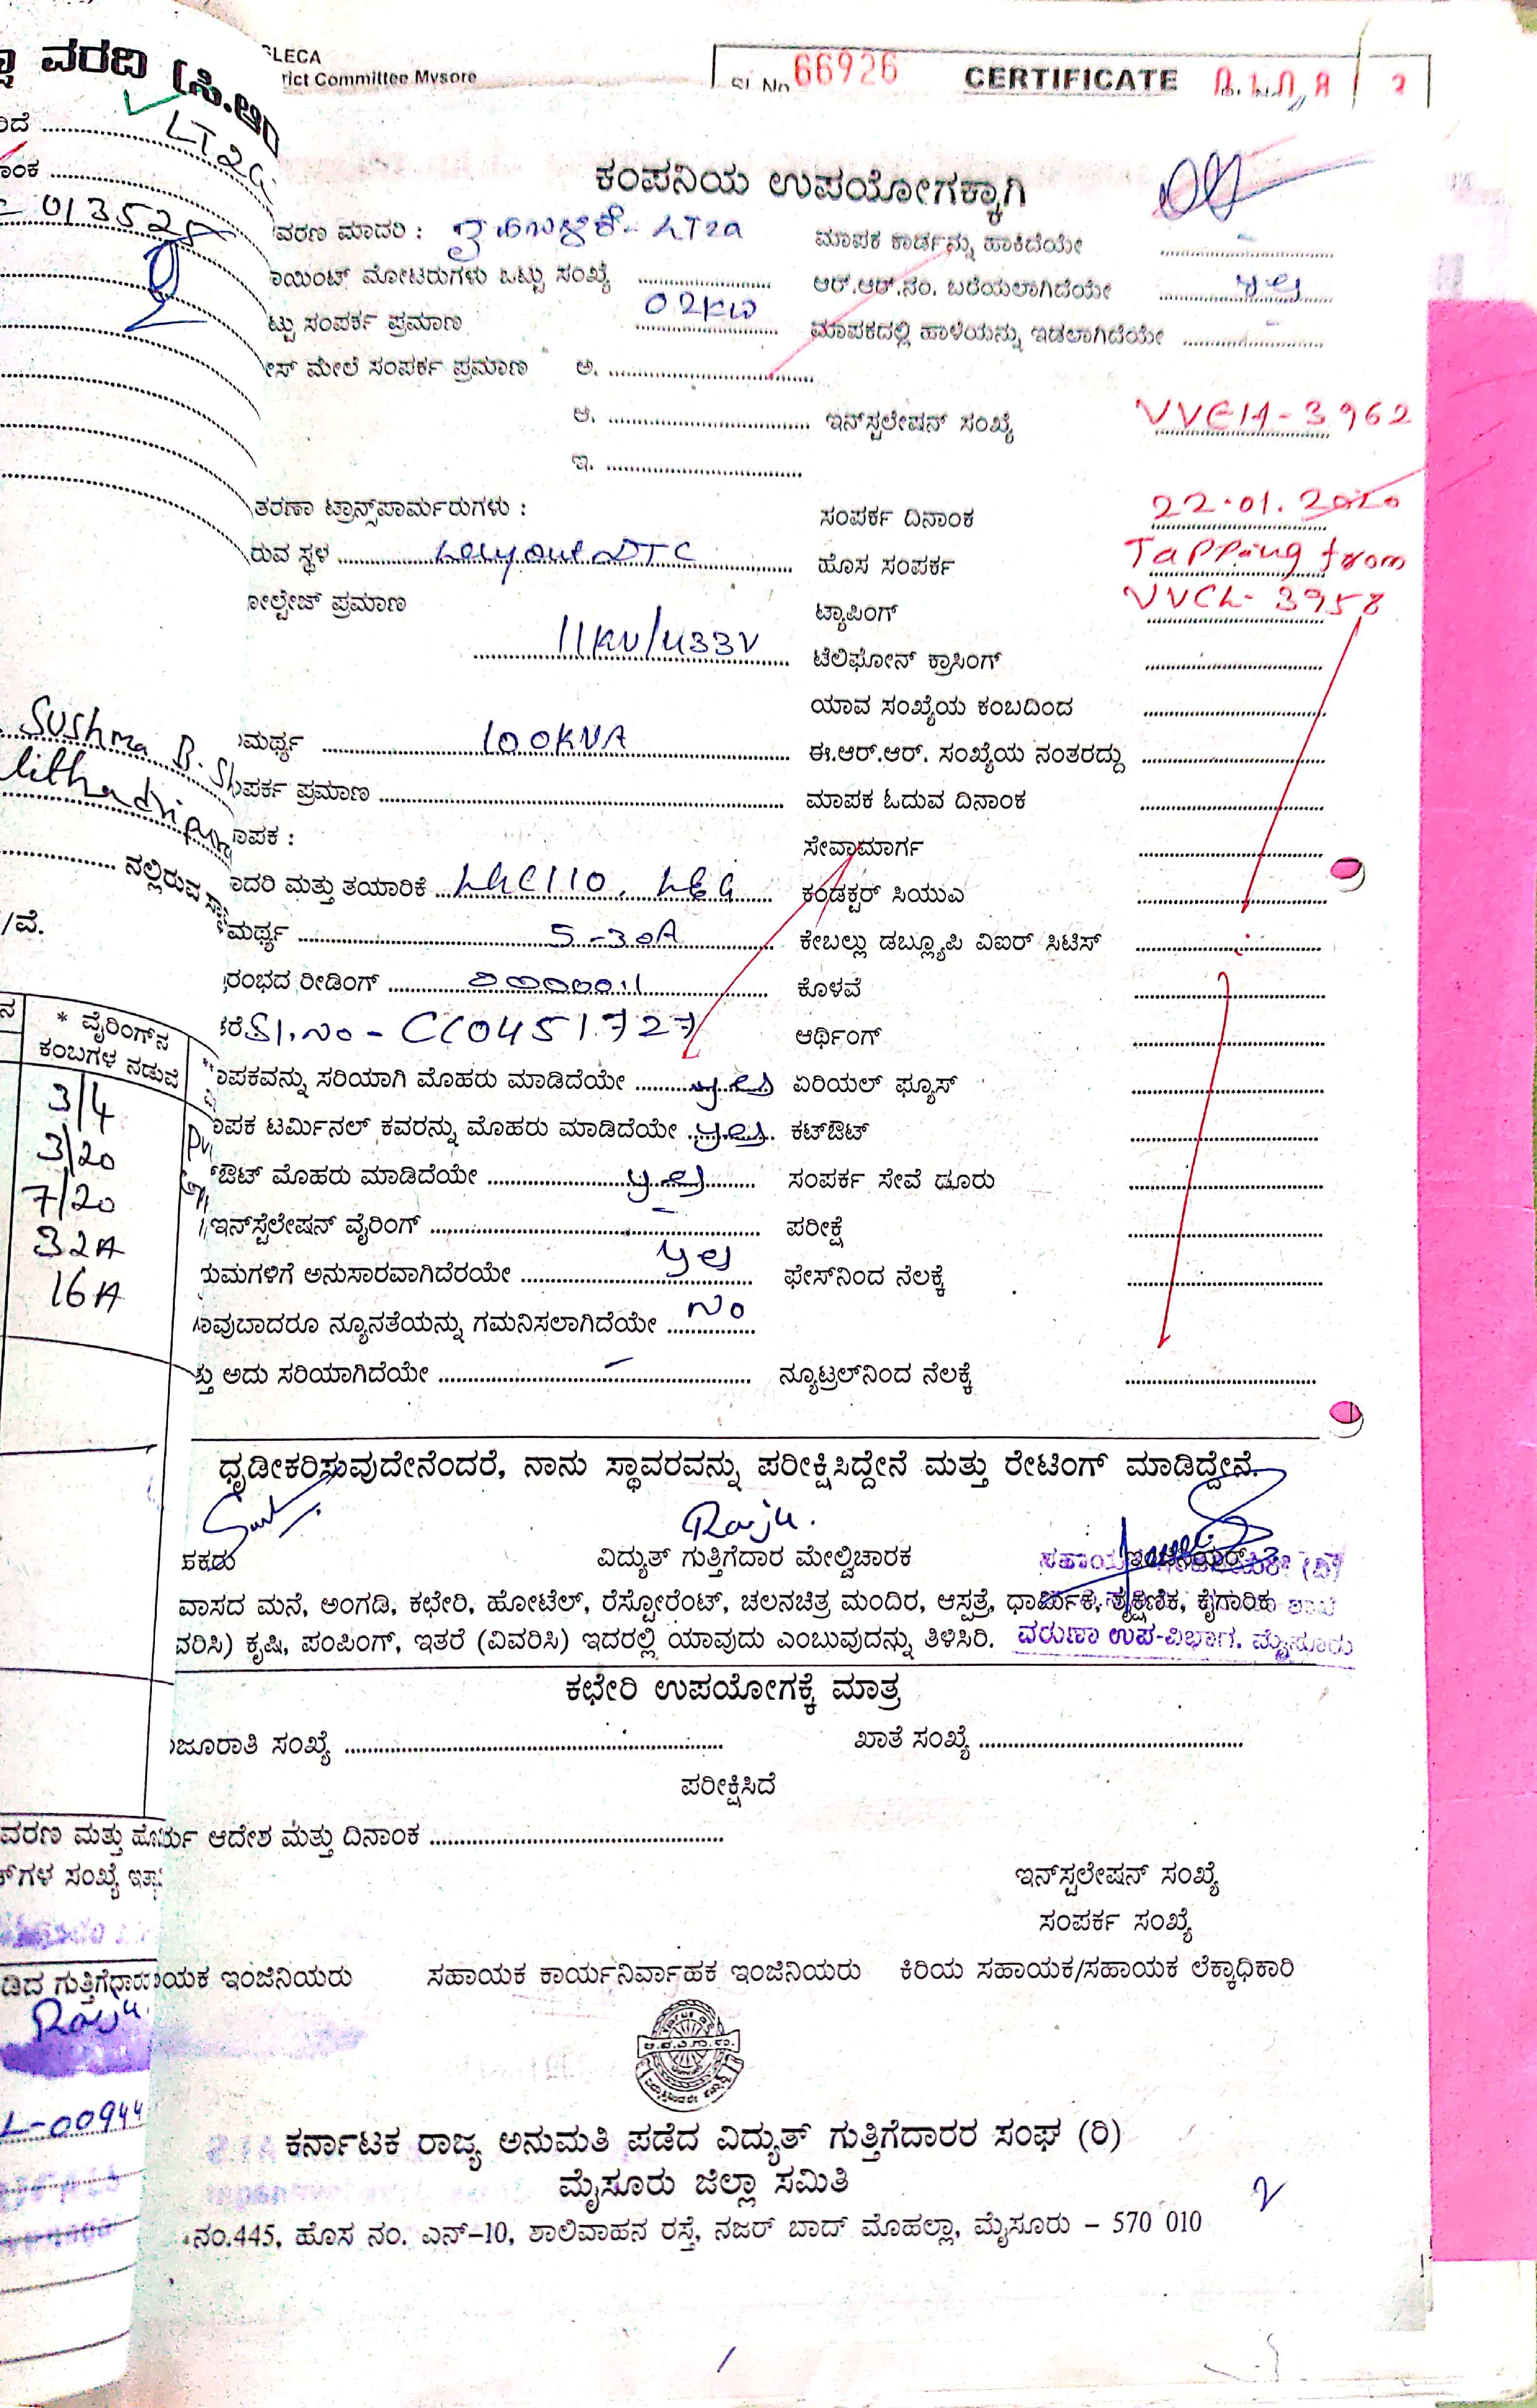 ವರದಿ (ಸಿ.ಆರ
LT2a
01352
Sushma B. Sh
ನಲ್ಲಿರುವ ಸ್ಥ
/ವೆ.
* ವೈರಿಂಗ್‌ನ
ಕಂಬಗಳ ನಡುವೆ
3/4
3/20
7/20
32A
16A
ವರಣ ಮತ್ತು
ಕ್‌ಗಳ ಸಂಖ್ಯೆ
ಡಿದ ಗುತ್ತಿಗೆದಾರ
Raju
L-00944
LECA
rict Committee Mysore
Sl. No 66926 CERTIFICATE
ಕಂಪನಿಯ ಉಪಯೋಗಕ್ಕಾಗಿ
ವರಣ ಮಾದರಿ : LT2a ಮಾಪಕ ಕಾರ್ಡನ್ನು ಹಾಕಿದೆಯೇ
ಾಯಿಂಟ್ ಮೋಟರುಗಳು ಒಟ್ಟು ಸಂಖ್ಯೆ ಆರ್.ಆರ್.ನಂ. ಬರೆಯಲಾಗಿದೆಯೇ yes
ಟ್ಟು ಸಂಪರ್ಕ ಪ್ರಮಾಣ 02KW ಮಾಪಕದಲ್ಲಿ ಹಾಳೆಯನ್ನು ಇಡಲಾಗಿದೆಯೇ
ೇಸ್ ಮೇಲೆ ಸಂಪರ್ಕ ಪ್ರಮಾಣ ಅ.
ಆ. ಇನ್‌ಸ್ಟಲೇಷನ್ ಸಂಖ್ಯೆ VVEH-3962
ಇ.
ತರಣಾ ಟ್ರಾನ್ಸ್‌ಪಾರ್ಮರುಗಳು : ಸಂಪರ್ಕ ದಿನಾಂಕ 22.01.2020
ರುವ ಸ್ಥಳ Layout DTC ಹೊಸ ಸಂಪರ್ಕ Tapping from
ೋಲ್ಟೇಜ್ ಪ್ರಮಾಣ ಟ್ಯಾಪಿಂಗ್ VVCL-3958
11KV/433V ಟೆಲಿಫೋನ್ ಕ್ರಾಸಿಂಗ್
ಯಾವ ಸಂಖ್ಯೆಯ ಕಂಬದಿಂದ
ಾಮರ್ಥ್ಯ 100KVA ಈ.ಆರ್.ಆರ್. ಸಂಖ್ಯೆಯ ನಂತರದ್ದು
ಂಪರ್ಕ ಪ್ರಮಾಣ ಮಾಪಕ ಓದುವ ದಿನಾಂಕ
ಾಪಕ : ಸೇವಾಮಾರ್ಗ
ಾದರಿ ಮತ್ತು ತಯಾರಿಕೆ ಕಂಡಕ್ಟರ್ ಸಿಯುಎ
ಾಮರ್ಥ್ಯ 5-30A ಕೇಬಲ್ಲು ಡಬ್ಲ್ಯೂಪಿ ವಿಐರ್ ಸಿಟಿಸ್
್ರರಂಭದ ರೀಡಿಂಗ್ ಕೊಳವೆ
ತರೆ Sl.No - CC0451727 ಆರ್ಥಿಂಗ್
ಾಪಕವನ್ನು ಸರಿಯಾಗಿ ಮೊಹರು ಮಾಡಿದೆಯೇ yes ಏರಿಯಲ್ ಫ್ಯೂಸ್
ಾಪಕ ಟರ್ಮಿನಲ್ ಕವರನ್ನು ಮೊಹರು ಮಾಡಿದೆಯೇ yes ಕಟ್‌ಔಟ್
ಔಟ್ ಮೊಹರು ಮಾಡಿದೆಯೇ yes ಸಂಪರ್ಕ ಸೇವೆ ಡೂರು
ಇನ್‌ಸ್ಟೆಲೇಷನ್ ವೈರಿಂಗ್ ಪರೀಕ್ಷೆ
ಯಮಗಳಿಗೆ ಅನುಸಾರವಾಗಿದೆರಯೇ yes ಫೇಸ್‌ನಿಂದ ನೆಲಕ್ಕೆ
ಾವುಬಾದರೂ ನ್ಯೂನತೆಯನ್ನು ಗಮನಿಸಲಾಗಿದೆಯೇ No
ತ್ತು ಅದು ಸರಿಯಾಗಿದೆಯೇ ನ್ಯೂಟ್ರಲ್‌ನಿಂದ ನೆಲಕ್ಕೆ
ಧೃಡೀಕರಿಸುವುದೇನೆಂದರೆ, ನಾನು ಸ್ಥಾವರವನ್ನು ಪರೀಕ್ಷಿಸಿದ್ದೇನೆ ಮತ್ತು ರೇಟಿಂಗ್ ಮಾಡಿದ್ದೇನೆ.
Raju.
ಹಕರು ವಿದ್ಯುತ್ ಗುತ್ತಿಗೆದಾರ ಮೇಲ್ವಿಚಾರಕ
ವಾಸದ ಮನೆ, ಅಂಗಡಿ, ಕಛೇರಿ, ಹೋಟೆಲ್, ರೆಸ್ಟೋರೆಂಟ್, ಚಲನಚಿತ್ರ ಮಂದಿರ, ಆಸ್ಪತ್ರೆ, ಧಾರ್ಮಿಕ, ಶೈಕ್ಷಣಿಕ, ಕೈಗಾರಿಕ
ವರಿಸಿ) ಕೃಷಿ, ಪಂಪಿಂಗ್, ಇತರೆ (ವಿವರಿಸಿ) ಇದರಲ್ಲಿ ಯಾವುದು ಎಂಬುವುದನ್ನು ತಿಳಿಸಿರಿ. ವರುಣಾ ಉಪ-ವಿಭಾಗ. ಮೈಸೂರು
ಕಛೇರಿ ಉಪಯೋಗಕ್ಕೆ ಮಾತ್ರ
ಜೂರಾತಿ ಸಂಖ್ಯೆ ಖಾತೆ ಸಂಖ್ಯೆ
ಪರೀಕ್ಷಿಸಿದೆ
ಆದೇಶ ಮತ್ತು ದಿನಾಂಕ
ಇನ್‌ಸ್ಟಲೇಷನ್ ಸಂಖ್ಯೆ
ಸಂಪರ್ಕ ಸಂಖ್ಯೆ
ಾಯಕ ಇಂಜಿನಿಯರು ಸಹಾಯಕ ಕಾರ್ಯನಿರ್ವಾಹಕ ಇಂಜಿನಿಯರು ಕಿರಿಯ ಸಹಾಯಕ/ಸಹಾಯಕ ಲೆಕ್ಕಾಧಿಕಾರಿ
ಕರ್ನಾಟಕ ರಾಜ್ಯ ಅನುಮತಿ ಪಡೆದ ವಿದ್ಯುತ್ ಗುತ್ತಿಗೆದಾರರ ಸಂಘ (ರಿ)
ಮೈಸೂರು ಜಿಲ್ಲಾ ಸಮಿತಿ
ನಂ.445, ಹೊಸ ನಂ. ಎನ್-10, ಶಾಲಿವಾಹನ ರಸ್ತೆ, ನಜರ್ ಬಾದ್ ಮೊಹಲ್ಲಾ, ಮೈಸೂರು – 570 010